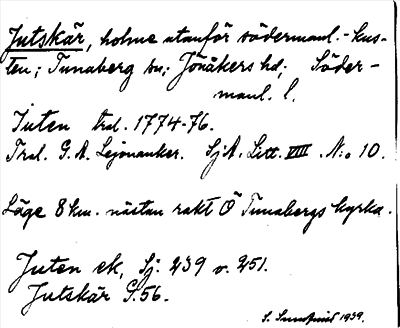 Jutskär, holme utanför södermanl.-kus-
ten; Tunaberg sn; Jönåkers hd; Söder-
manl. l.
Juten trol. 1774-76.
Trol. G. A. Lejonanker. SjA. Litt. VIII. N:o 10.
Läge 8 km. nästan rakt Ö Tunabergs kyrka.
Juten ek, Sj. 239 v. 251.
Jutskär S. 56.
S. 1939.